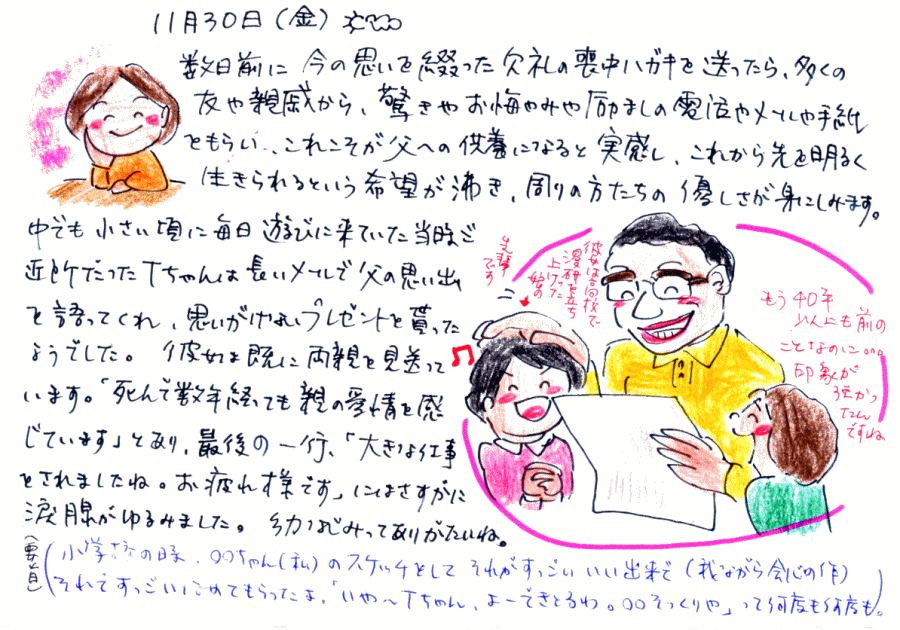 11月30日（金）
数日前に 今の思いを綴った欠礼の喪中ハガキを送ったら、多くの
友や親戚から、驚きやお悔やみや励ましの電話やメールや手紙
をもらい、これこそが父への供養になると 実感し、これから先を明るく
生きられるという希望が沸き、周りの方たちの優しさが身にしみます。
中でも 小さい頃に毎日 遊びに来ていた当時ご
近所だったTちゃんは長いメールで父の思い出
を語ってくれ、思いがけないプレゼントを貰った
ようでした。 彼女は既に両親を見送って
います。「死んで数年経っても親の愛情を感
じています」とあり、最後の一行、「大きな仕事
をされましたね。お疲れ様です」にはさすがに
涙腺がゆるみました。 幼なじみってありがたいね。
彼女は高校で
漫研を立ち
上げた
もう40年
以上も前の
ことなのに…
印象が
強かっ
たん
ですね
Tちゃんの要旨
（小学校の時、○○ちゃん（私）のスケッチをして それがすっごい いい出来で（我ながら会心の作）
それですっごいほめてもらったよ、「いや〜Tちゃん、よーできとるわ。○○そっくりや」って何度も何度も。）